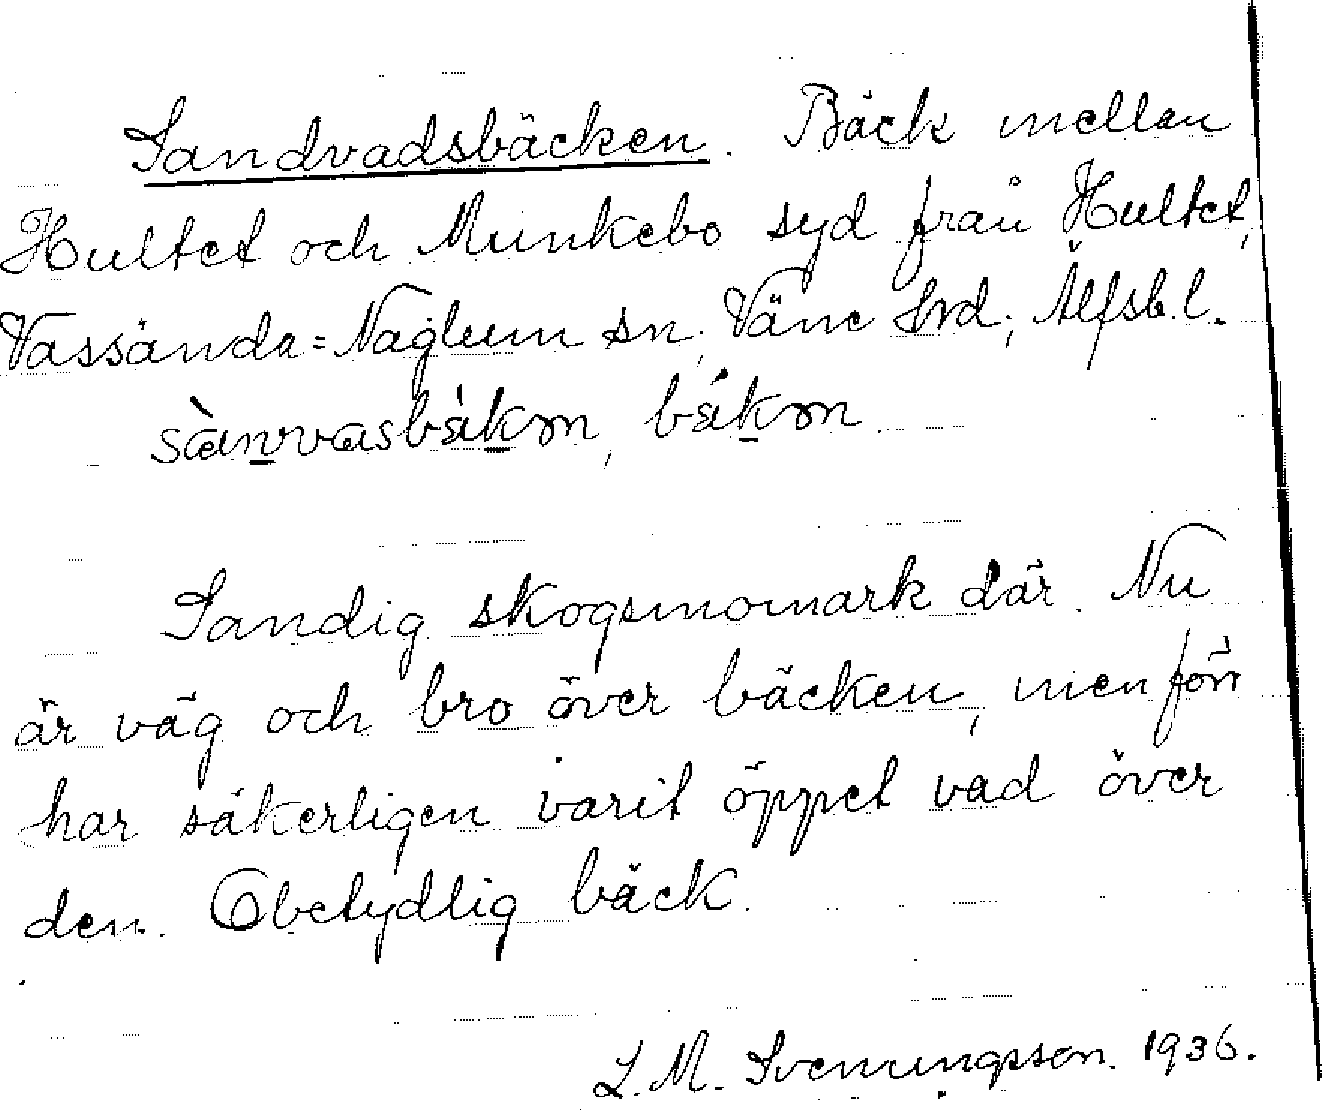 Sandvadsbäcken. Bäck mellan
Hultet och Munkebo syd från Hultet,
Vassända=Naglum sn, Väne hrd, Älfsb. l.
Sandig skogsmomark där. Nu
är väg och bro över bäcken, men förr
har säkerligen varit öppet vad över
den. Obetydlig bäck.
L. M. Svenungsson. 1936.